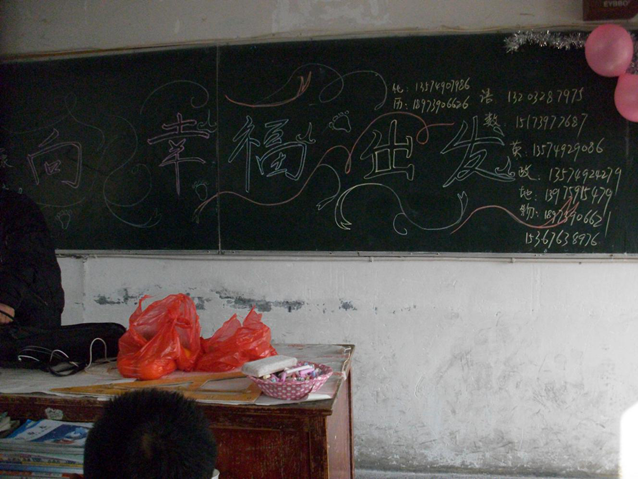 向幸福出发
化: 13574907986
历: 18973906626
语 13203287975
数: 15173977687
英: 13574929086
政: 13574924279
地: 18975915479
物: 18973906621
15367638976